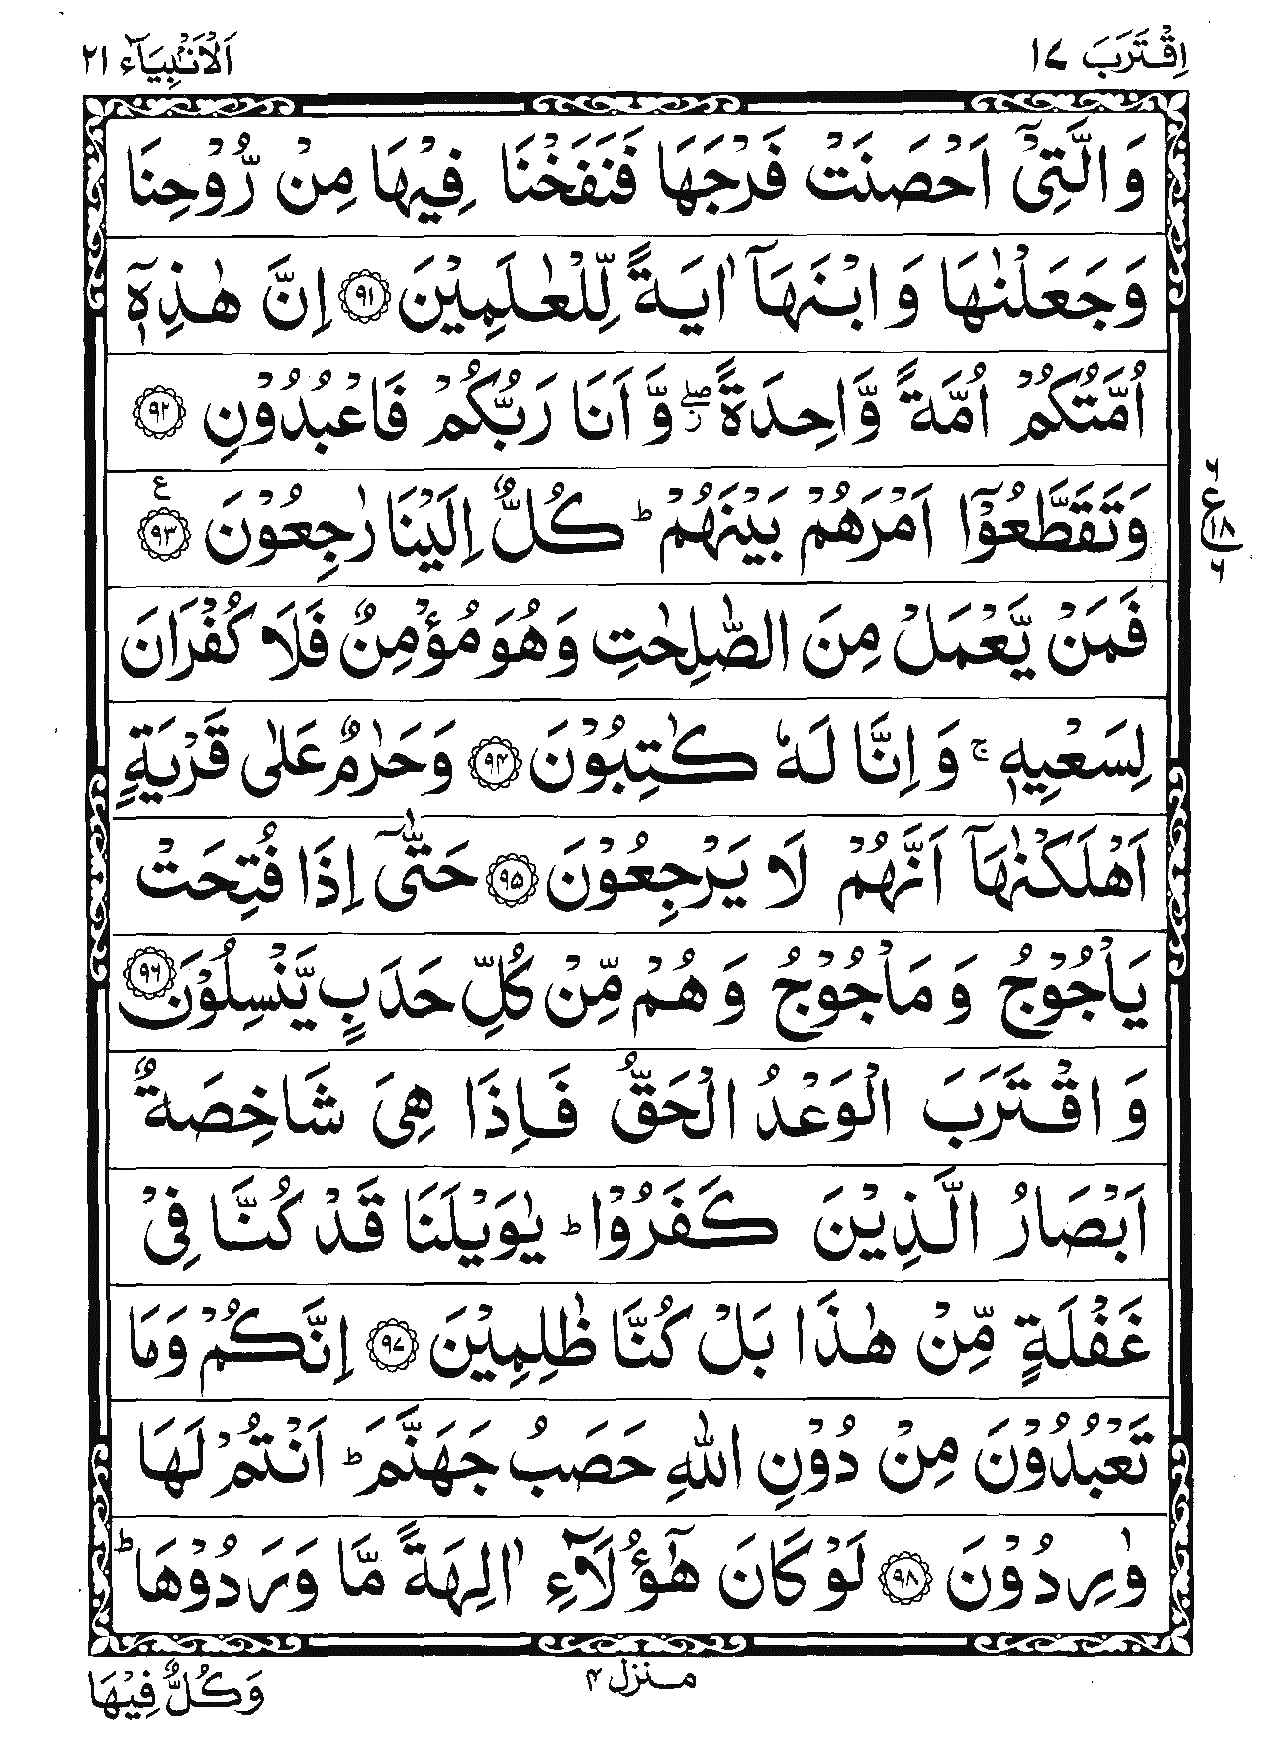 اِقْتَرَبَ ١٧
اَلْاَنْۢبِيَآء ٢١
وَالَّتِيْۤ اَحْصَنَتْ فَرْجَهَا فَنَفَخْنَا فِيْهَا مِنْ رُّوْحِنَا
وَجَعَلْنٰهَا وَابْنَهَاۤ اٰيَةً لِّلْعٰلَمِيْنَ ۝٩١ اِنَّ هٰذِهٖۤ
اُمَّتُكُمْ اُمَّةً وَّاحِدَةً ۖ٘ وَّاَنَا رَبُّكُمْ فَاعْبُدُوْنِ ۝٩٢
وَتَقَطَّعُوْۤا اَمْرَهُمْ بَيْنَهُمْ ؕ كُلٌّ اِلَيْنَا رٰجِعُوْنَ ۝٩٣ ع
٦ ع ١٨ ٦
فَمَنْ يَّعْمَلْ مِنَ الصّٰلِحٰتِ وَهُوَ مُؤْمِنٌ فَلَا كُفْرَانَ
لِسَعْيِهٖ ۚ وَاِنَّا لَهٗ كٰتِبُوْنَ ۝٩٤ وَحَرٰمٌ عَلٰى قَرْيَةٍ
اَهْلَكْنٰهَاۤ اَنَّهُمْ لَا يَرْجِعُوْنَ ۝٩٥ حَتّٰۤى اِذَا فُتِحَتْ
يَاْجُوْجُ وَمَاْجُوْجُ وَهُمْ مِّنْ كُلِّ حَدَبٍ يَّنْسِلُوْنَ ۝٩٦
وَاقْتَرَبَ الْوَعْدُ الْحَقُّ فَاِذَا هِيَ شَاخِصَةٌ
اَبْصَارُ الَّذِيْنَ كَفَرُوْا ؕ يٰوَيْلَنَا قَدْ كُنَّا فِيْ
غَفْلَةٍ مِّنْ هٰذَا بَلْ كُنَّا ظٰلِمِيْنَ ۝٩٧ اِنَّكُمْ وَمَا
تَعْبُدُوْنَ مِنْ دُوْنِ اللّٰهِ حَصَبُ جَهَنَّمَ ؕ اَنْتُمْ لَهَا
وٰرِدُوْنَ ۝٩٨ لَوْ كَانَ هٰۤؤُلَآءِ اٰلِهَةً مَّا وَرَدُوْهَا ؕ
منزل ٤
وَكُلٌّ فِيْهَا